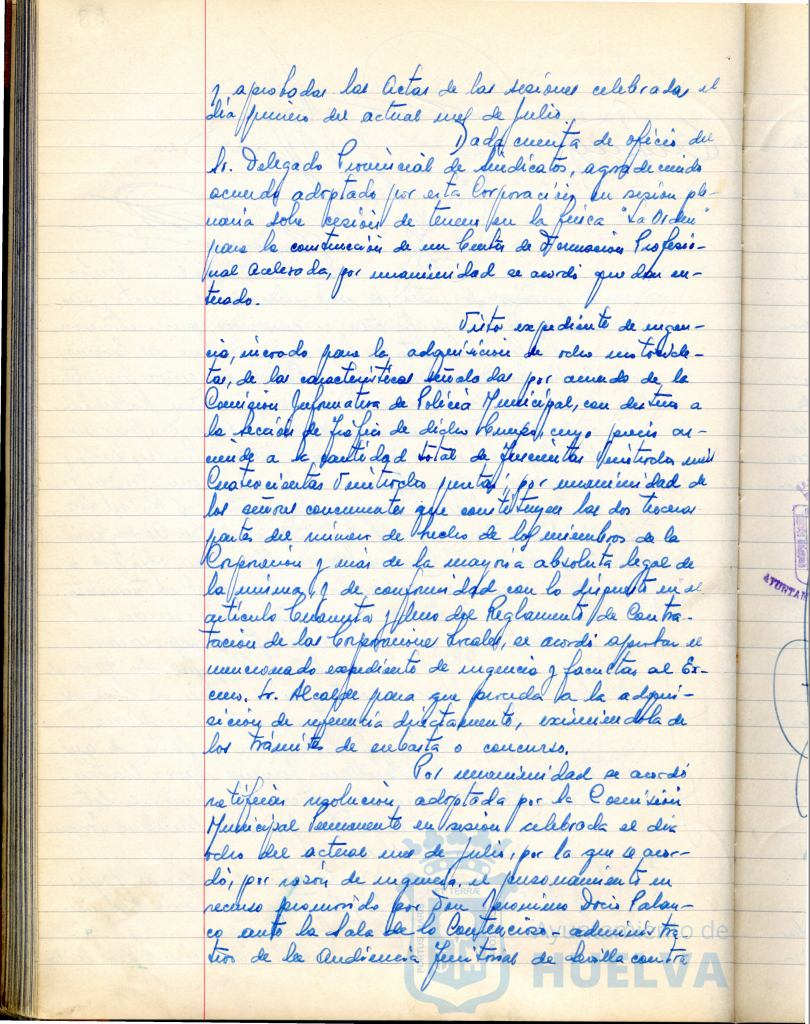 y aprobadas las Actas de las sesiones celebradas el
día primero del actual mes de Julio.
Dada cuenta de oficio del
Sr. Delegado Provincial de Sindicatos, agradeciendo
acuerdo adoptado por esta Corporación en sesión ple-
naria sobre cesión de terreno en la finca "La Orden"
para la construcción de un Centro de Formación Profesio-
nal Acelerada, por unanimidad se acordó quedar en-
terado.
Visto expediente de urgen-
cia, incoado para la adquisición de ocho motocicle-
tas, de las características señaladas por acuerdo de la
Comisión Informativa de Policía Municipal, con destino a
la sección de Tráfico de dicho Cuerpo, cuyo precio as-
ciende a la cantidad total de Trescientas Veintiocho mil
Cuatrocientas Veintiocho pesetas; por unanimidad de
los señores concurrentes que constituyen las dos terceras
partes del número de hecho de los miembros de la
Corporación y más de la mayoría absoluta legal de
la misma, y de conformidad con lo dispuesto en el
artículo Cuarenta y Uno del Reglamento de Contra-
tación de las Corporaciones Locales, se acordó aprobar el
mencionado expediente de urgencia y facultar al Ex-
cmo. Sr. Alcalde para que proceda a la adqui-
sición de referencia directamente, eximiéndola de
los trámites de subasta o concurso.
Por unanimidad se acordó
ratificar resolución adoptada por la Comisión
Municipal Permanente en sesión celebrada el día
ocho del actual mes de Julio, por la que se acor-
dó, por razón de urgencia, el personamiento en
recurso promovido por Don Jerónimo Palan-
co ante la Sala de lo Contencioso-administra-
tivo de la Audiencia Territorial de Sevilla contra
AYUNTAM
Ayuntamiento de
HUELVA